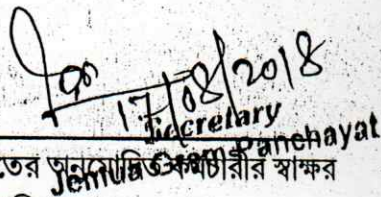 17/08/2018
Secretary
Jemua Gram Panchayat
তের অনুমোদিত কর্মচারীর স্বাক্ষর